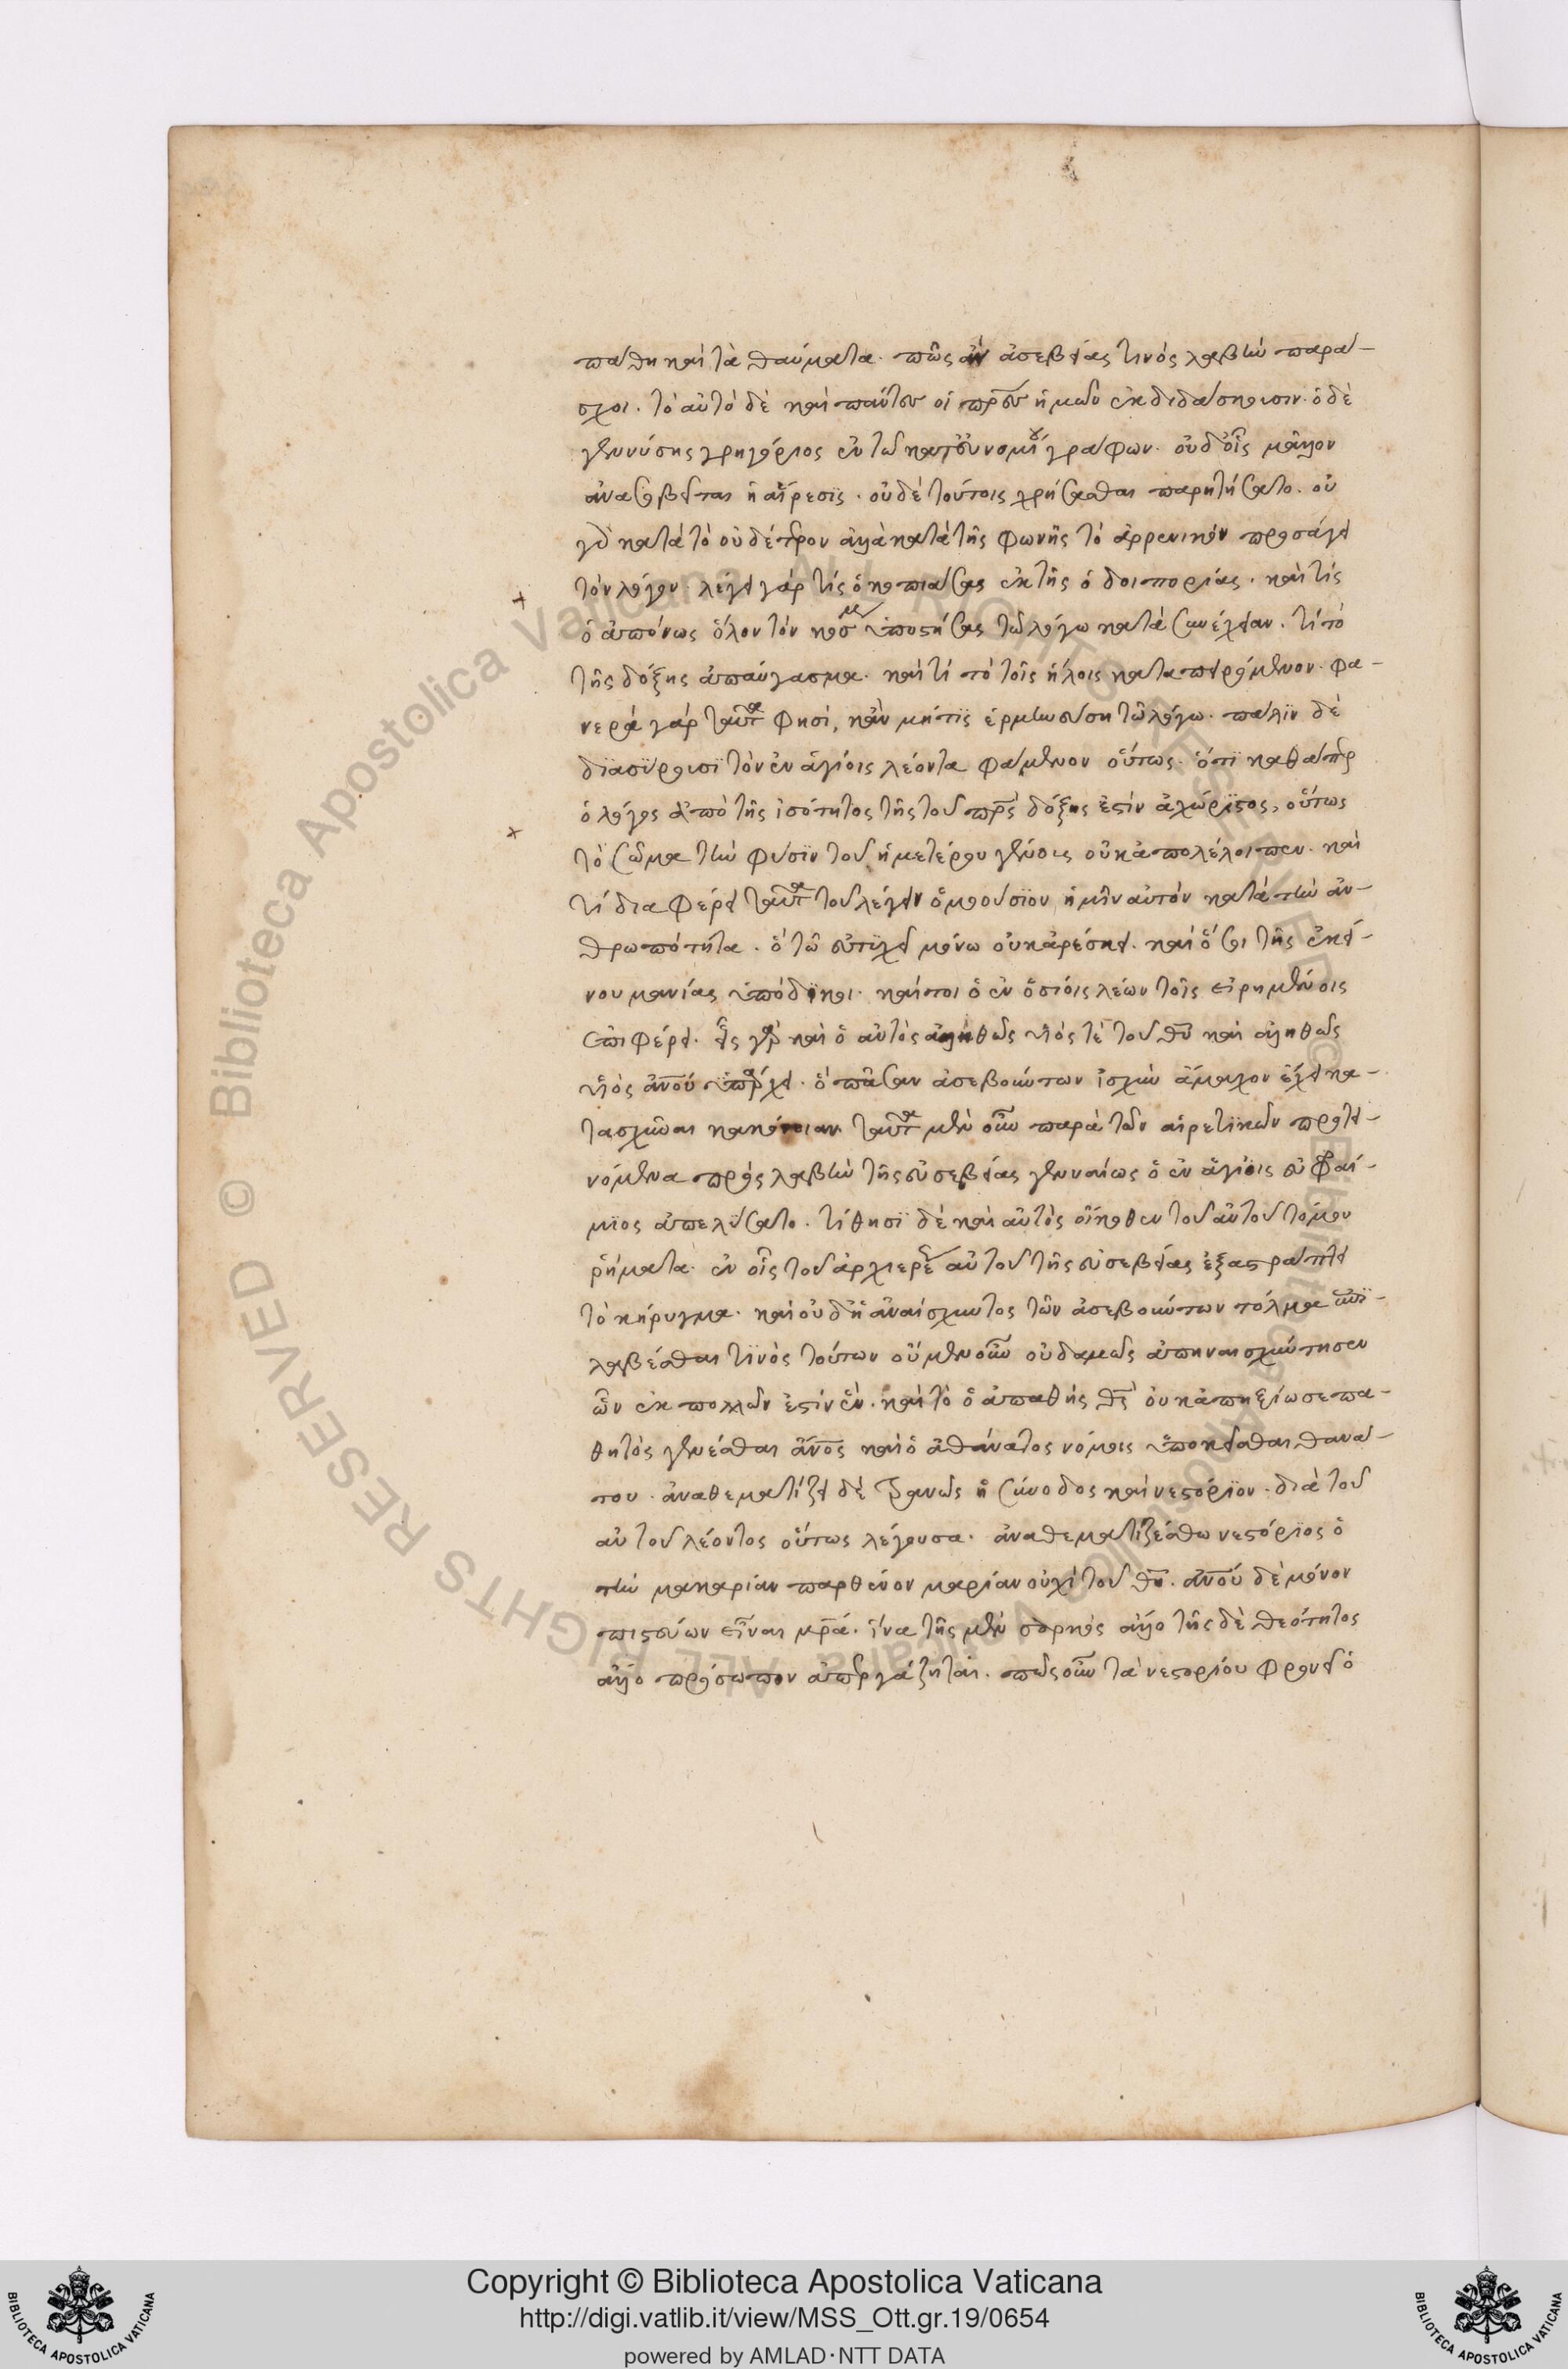 πάθη καὶ τὰ θαύματα. πῶς ἂν ἀσεβείας τινὸς λαβὴν παρά-
σχοι. τὸ αὐτὸ δὲ καὶ πάντες οἱ πρ̅ες ἡμῶν ἐκδιδάσκουσιν. ὁ δὲ
γε νύσης γρηγόριος ἐν τῷ κατ' εὐνομίου γράφων. οὐδ' οἷς μᾶλλον
ἀνασοβεῖται ἡ αἵρεσις. οὐδὲ τούτοις χρήσασθαι παρῃτήσατο. οὐ
γὰρ κατὰ τὸ οὐδέτερον ἀλλὰ κατὰ τῆς φωνῆς τὸ ἀρρενικὸν προσάγει
τὸν λόγον. λέγει γὰρ τίς ὁ κοπιάσας ἐκ τῆς ὁδοιπορίας. καὶ τίς
ὁ ἀπόνως ὅλον τὸν κόσμον ὑποστήσας τῷ λόγω κατὰ συνέχειαν. τί τὸ
τῆς δόξης ἀπαύγασμα. καὶ τί τὸ τοῖς ἥλοις καταπειρόμενον. φα-
νερὰ γὰρ ταῦτα φησὶ, κἂν μή τις ἑρμηνεύση τῷ λόγω. πάλιν δὲ
διασύρουσι τὸν ἐν ἁγίοις λέοντα φάμενον οὕτως. ὅτι καθάπερ
ὁ λόγος ἀπὸ τῆς ἰσότητος τῆς τοῦ πρ̅ς δόξης ἐστὶν ἀχώριστος, οὕτως
τὸ σῶμα τὴν φύσιν τοῦ ἡμετέρου γένους οὐκ ἀπολέλοιπεν. καὶ
τί διαφέρει ταῦτα τοῦ λέγειν ὁμοούσιον ἡμῖν αὐτὸν κατὰ τὴν ἀν-
θρωπότητα. ὃ τῷ εὐτυχεῖ μόνω οὐκ ἀρέσκει. καὶ ὅσοι τῆς ἐκεί-
νου μανίας ὑπόδικοι. καίτοι ὁ ἐν ὁσίοις λέων τοῖς εἰρημένοις
ἐπιφέρει. εἷς γὰρ καὶ ὁ αὐτὸς ἀληθῶς υἱός τὲ τοῦ θ̅υ καὶ ἀληθῶς
υἱὸς ἀν̅ου ὑπάρχει. ὃ πᾶσαν ἀσεβούντων ἰσχὺν ἄμαχον ἔχει κα-
τασχῦναι κακόνοιαν. ταῦτα μὲν οὖν παρὰ τῶν αἱρετικῶν προτει-
νόμενα πρὸς λαβὴν τῆς εὐσεβείας γενναίως ὁ ἐν ἁγίοις εὐφραί-
μιος ἀπελύσατο. τίθησι δὲ καὶ αὐτὸς οἴκοθεν τοῦ αὐτοῦ τόμου
ῥήματα. ἐν οἷς τοῦ ἀρχιερέως αὐτοῦ τῆς εὐσεβείας ἐξαστράπτει
τὸ κήρυγμα. καὶ οὐδ' ἡ ἀναίσχυντος τῶν ἀσεβούντων τόλμα ἐπι-
λαβέσθαι τινὸς τούτων οὔμενουν οὐδαμῶς ἀπηναισχύντησεν
ὧν ἐκ πολλῶν ἐστὶν ἕν. καὶ τὸ ὁ ἀπαθὴς θ̅ς οὐκ ἀπηξίωσε πα-
θητὸς γενέσθαι ἄν̅ος καὶ ὁ ἀθάνατος νόμοις ὑποκεῖσθαι θανά-
του. ἀναθεματίζει δὲ ἱκανῶς ἡ σύνοδος καὶ νεστόριον. διὰ τοῦ
αὐτοῦ λέοντος οὕτως λέγουσα. ἀναθεματιζέσθω νεστόριος ὁ
τὴν μακαρίαν παρθένον μαρίαν οὐχὶ τοῦ θ̅υ. ἀν̅ου δὲ μόνον
πιστεύων εἶναι μρ̅α. ἵνα τῆς μὲν σαρκὸς ἄλλο τῆς δὲ θεότητος
ἄλλο πρόσωπον ἀπεργάζηται. πῶς οὖν τὰ νεστορίου φρονεῖ ὁ
Copyright © Biblioteca Apostolica Vaticana
http://digi.vatlib.it/view/MSS_Ott.gr.19/0654
powered by AMLAD·NTT DATA